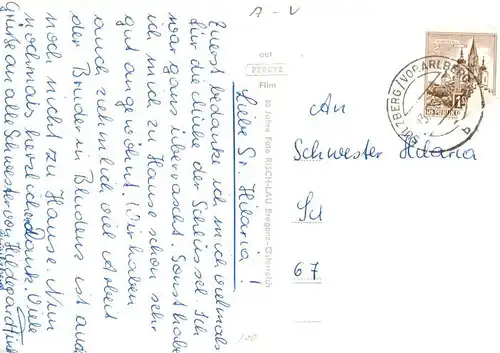 A - V
Liebe Sr. Hilaria!
Zuerst bedanke ich mich vielmals
für die Schlüssel. Ich
war ganz überrascht. Sonst habe
ich mich zu Hause schon sehr
gut angewöhnt. Wir haben
auch ziemlich viel Arbeit
der Bruder in Bludenz ist auch
noch nicht zu Hause. Nun
nochmals herzlichen Dank. Viele
Grüße an alle Schwestern von Hildegard
auf
PERUTZ
Film
Jahre Foto RISCH-LAU Bregenz-Österreich
An
Schwester Hilaria
67
SULZBERG/VORARLBERG
b